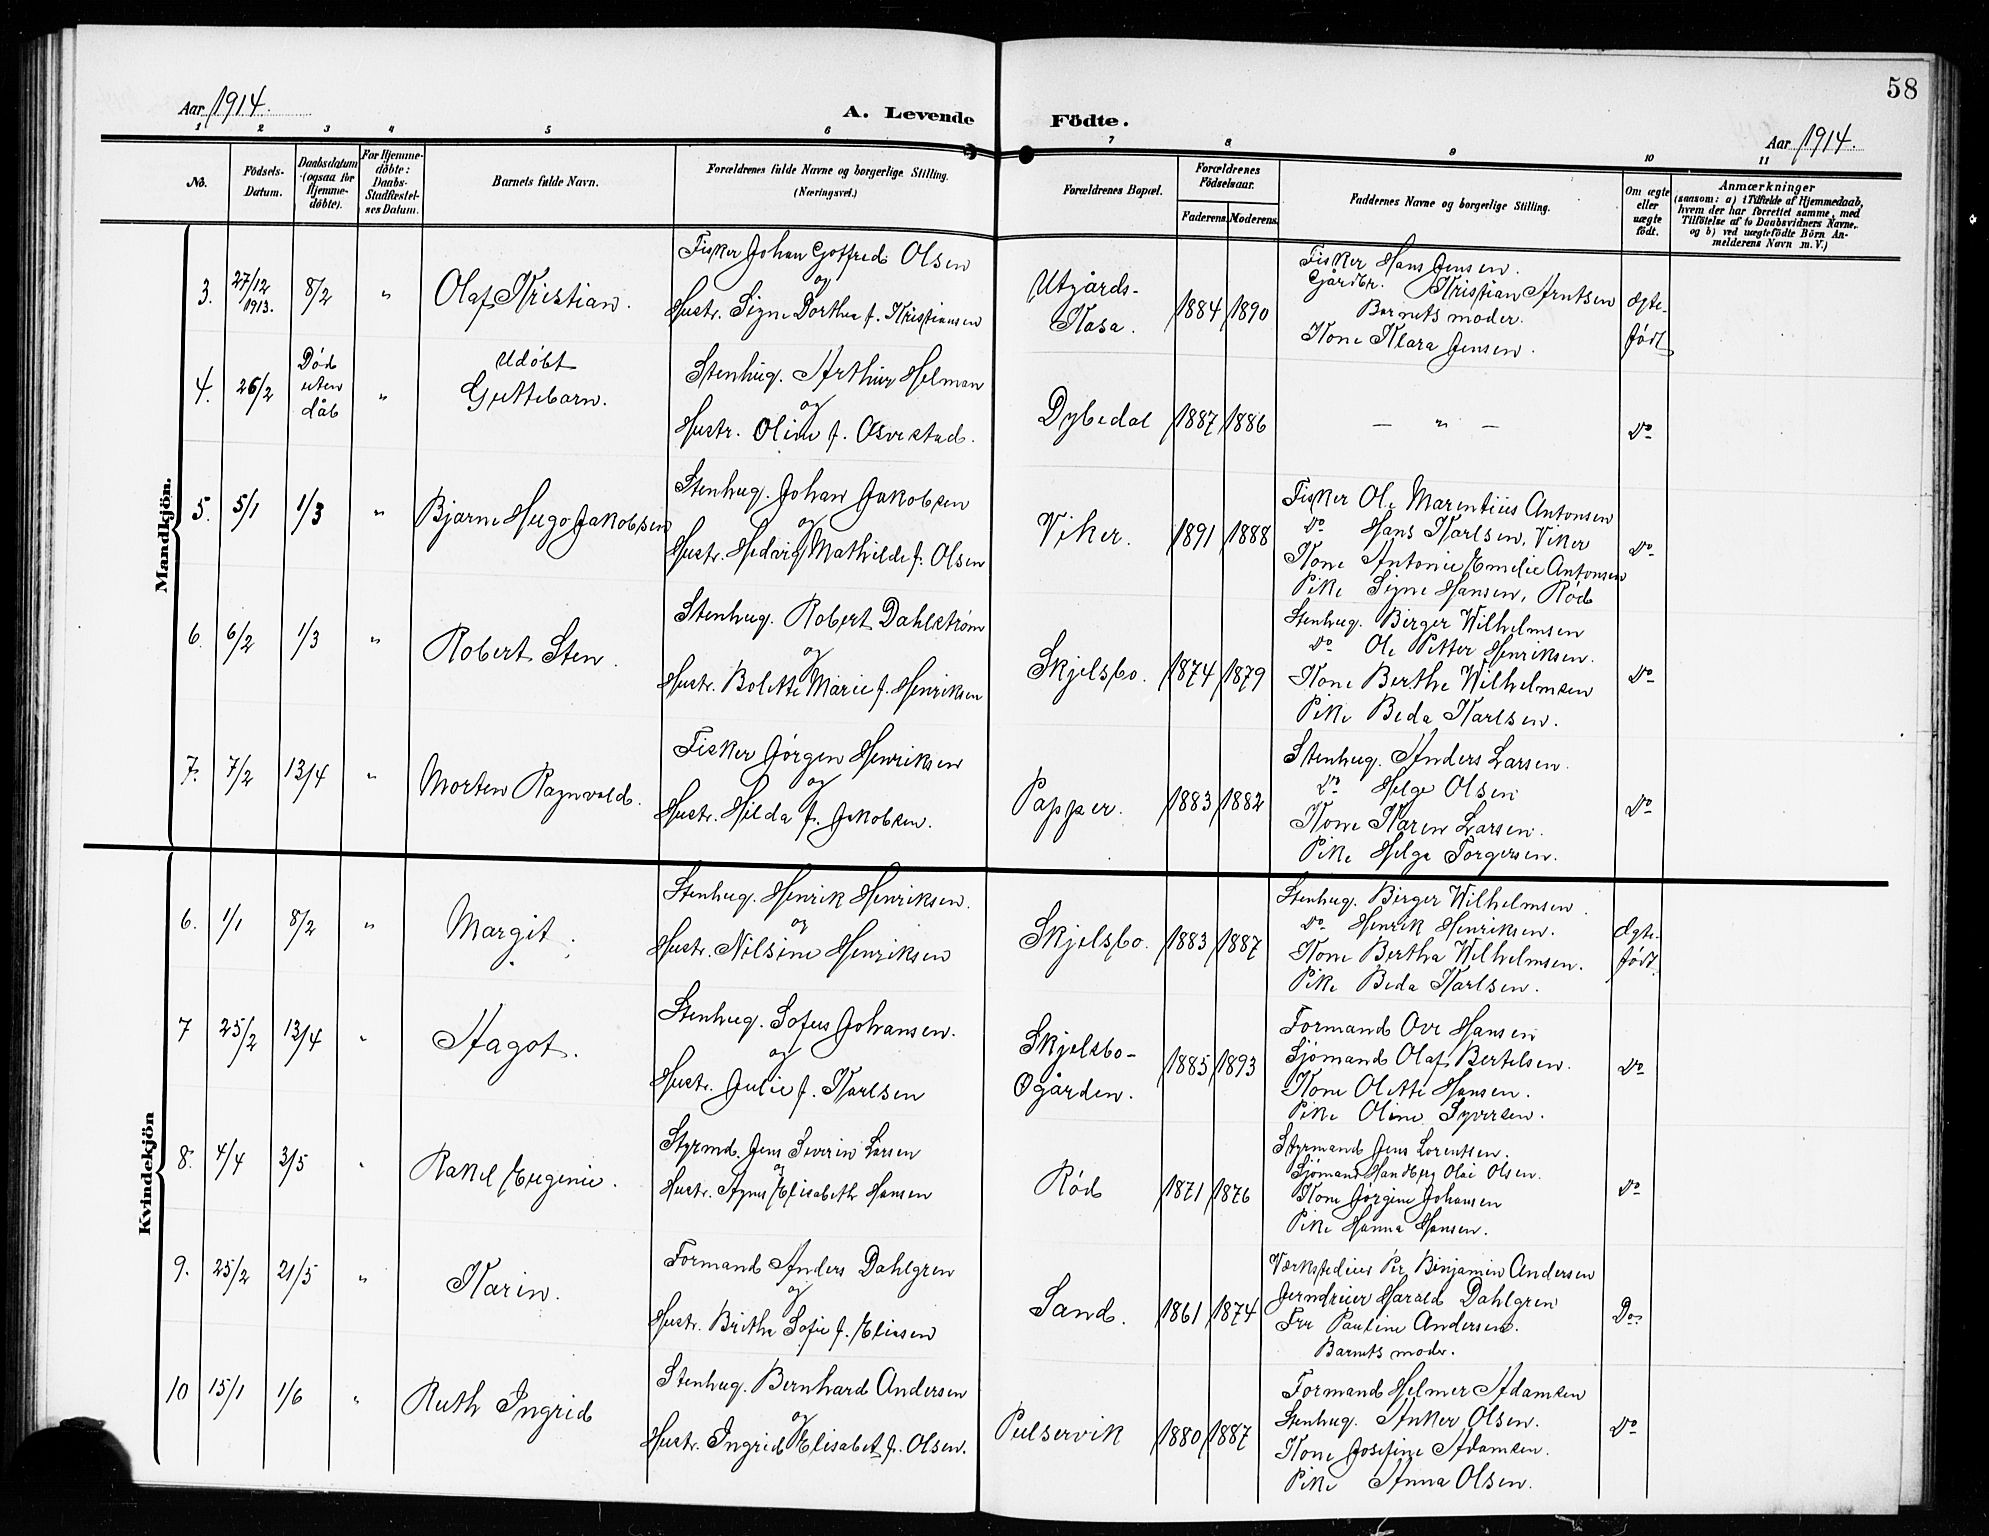 58
Aar 1914.
A. Levende Födte.
Aar 1914.
1 2 3 4 5 6 7 8 9 10 11
No.
Födsels-Datum.
Daabsdatum (ogsaa for Hjemmedöbte).
For Hjemmedöbte: Daabs-Stadfæstelses Datum.
Barnets fulde Navn.
Forældrenes fulde Navne og borgerlige Stilling.
(Næringsvei.)
Forældrenes Bopæl.
Forældrenes Födselsaar.
Faderens. Moderens.
Faddernes Navne og borgerlige Stilling.
Om ægte eller uægte födt.
Anmærkninger
(saasom: a) i Tilfælde af Hjemmedaab,
hvem der har forrettet samme, med
Tilföielse af to Daabsvidners Navne.
og b) ved uægtefödte Börn An-
melderens Navn m. V.)
Mandkjön.
3. 27/12 1913. 8/2 " Olaf Kristian.
Fisker Johan Gotfred Olsen
og
Hustr. Signe Dorthea f. Kristiansen
Utgårds-
Kasa.
1884 1890
Fisker Hans Jensen.
Gårdbr. Kristian Arntsen
Barnets moder.
Kone Klara Jensen.
Ægte-
født
4. 26/2 Død uten dåb " Udøbt
Guttebarn.
Stenhug. Arthur Helman
og
Hustr. Oline f. Osvestad.
Dybedal 1887 1886 — " — Do
5. 5/1 1/3 " Bjarne Hugo Jakobsen
Stenhug. Johan Jakobsen
og
Hustr. Hedvig Mathilde f. Olsen
Viker. 1891 1888
Fisker Ole Marentius Antonsen
Do Hans Karlsen, Viker
Kone Antonie Emelie Antonsen
Pike Signe Hansen, Rød
Do
6. 6/2 1/3 " Robert Sten.
Stenhug. Robert Dahlstrøm
og
Hustr. Bolette Marie f. Henriksen
Skjelsbo. 1874 1879
Stenhug. Birger Wilhelmsen
Do Ole Petter Henriksen.
Kone Berthe Wilhelmsen
Pike Beda Karlsen.
Do
7. 7/2 13/4 " Morten Ragnvald.
Fisker Jørgen Henriksen
og
Hustr. Hilda f. Jakobsen.
Papper. 1883 1882
Stenhug. Anders Larsen.
Do Helge Olsen
Kone Karen Larsen.
Pike Helga Torgersen.
Do
Kvindekjön
6. 1/1 8/2 " Margit.
Stenhug. Henrik Henriksen.
og
Hustr. Nilsine Henriksen
Skjelsbo. 1883 1887
Stenhug. Birger Wilhelmsen.
Do Henrik Henriksen.
Kone Bertha Wilhelmsen.
Pike Beda Karlsen.
Ægte-
født.
7 25/2 13/4 " Aagot.
Stenhug. Sofus Johansen.
og
Hustr. Julie f. Karlsen
Skjelsbo-
Ogården.
1885 1893
Formand Ove Hansen
Sjømand Olaf Bertelsen.
Kone Olette Hansen.
Pike Oline Syversen.
Do
8. 4/4 3/5 " Rakel Eugenie.
Styrmd. Jens Severin Larsen
og
Hustr. Agnes Elisabeth Hansen
Rød 1871 1876
Styrmand Jens Lorentsen.
Sjømand Olai Olsen.
Kone Jørgine Johansen
Pike Hanna Hansen.
Do
9. 25/2 21/5 " Karin.
Formand Anders Dahlgren
og
Hustr. Britha Sofie f. Eliesen
Sand. 1861 1874
Værkstedeier Per Binjamin Andersen
Jerndreier Harald Dahlgren
Fru Pauline Andersen.
Barnets moder.
Do
10 15/1 1/6 " Ruth Ingrid
Stenhug. Bernhard Andersen
og
Hustr. Ingrid Elisabet f. Olsen.
Pulservik 1880 1887
Formand Helmer Adamsen
Stenhug. Anker Olsen.
Kone Josefine Adamsen.
Pike Anna Olsen.
Do